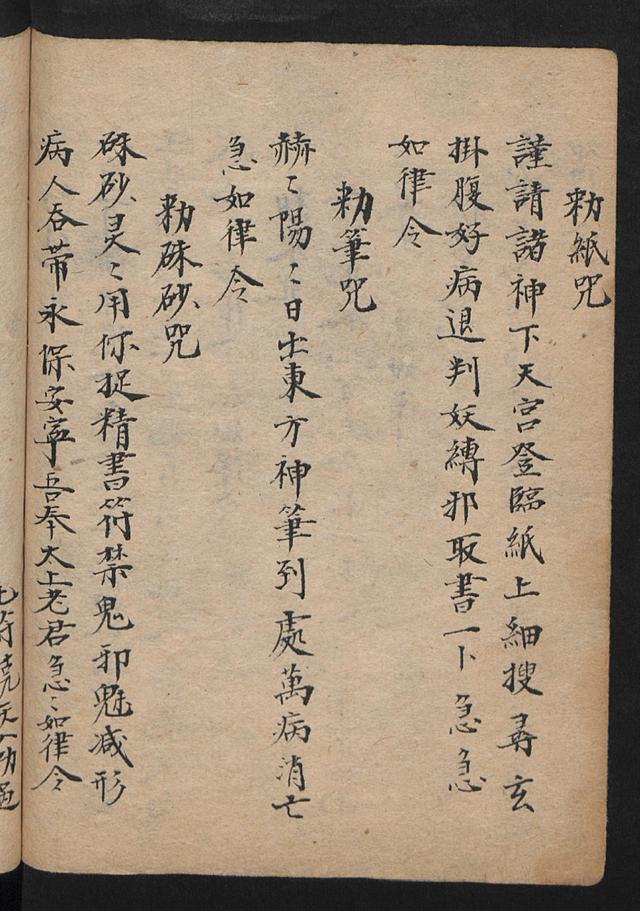 勑紙咒
謹請諸神下天宮登臨紙上細搜尋玄
掛腹好病退判妖縛邪取書一卜急急
如律令
勑筆咒
赫〻陽〻日出東方神筆到處萬病消亡
急如律令
勑硃砂咒
硃砂灵〻用你捉精書符禁鬼邪魁减形
病人吞带永保安寧吾奉太上老君急〻如律令